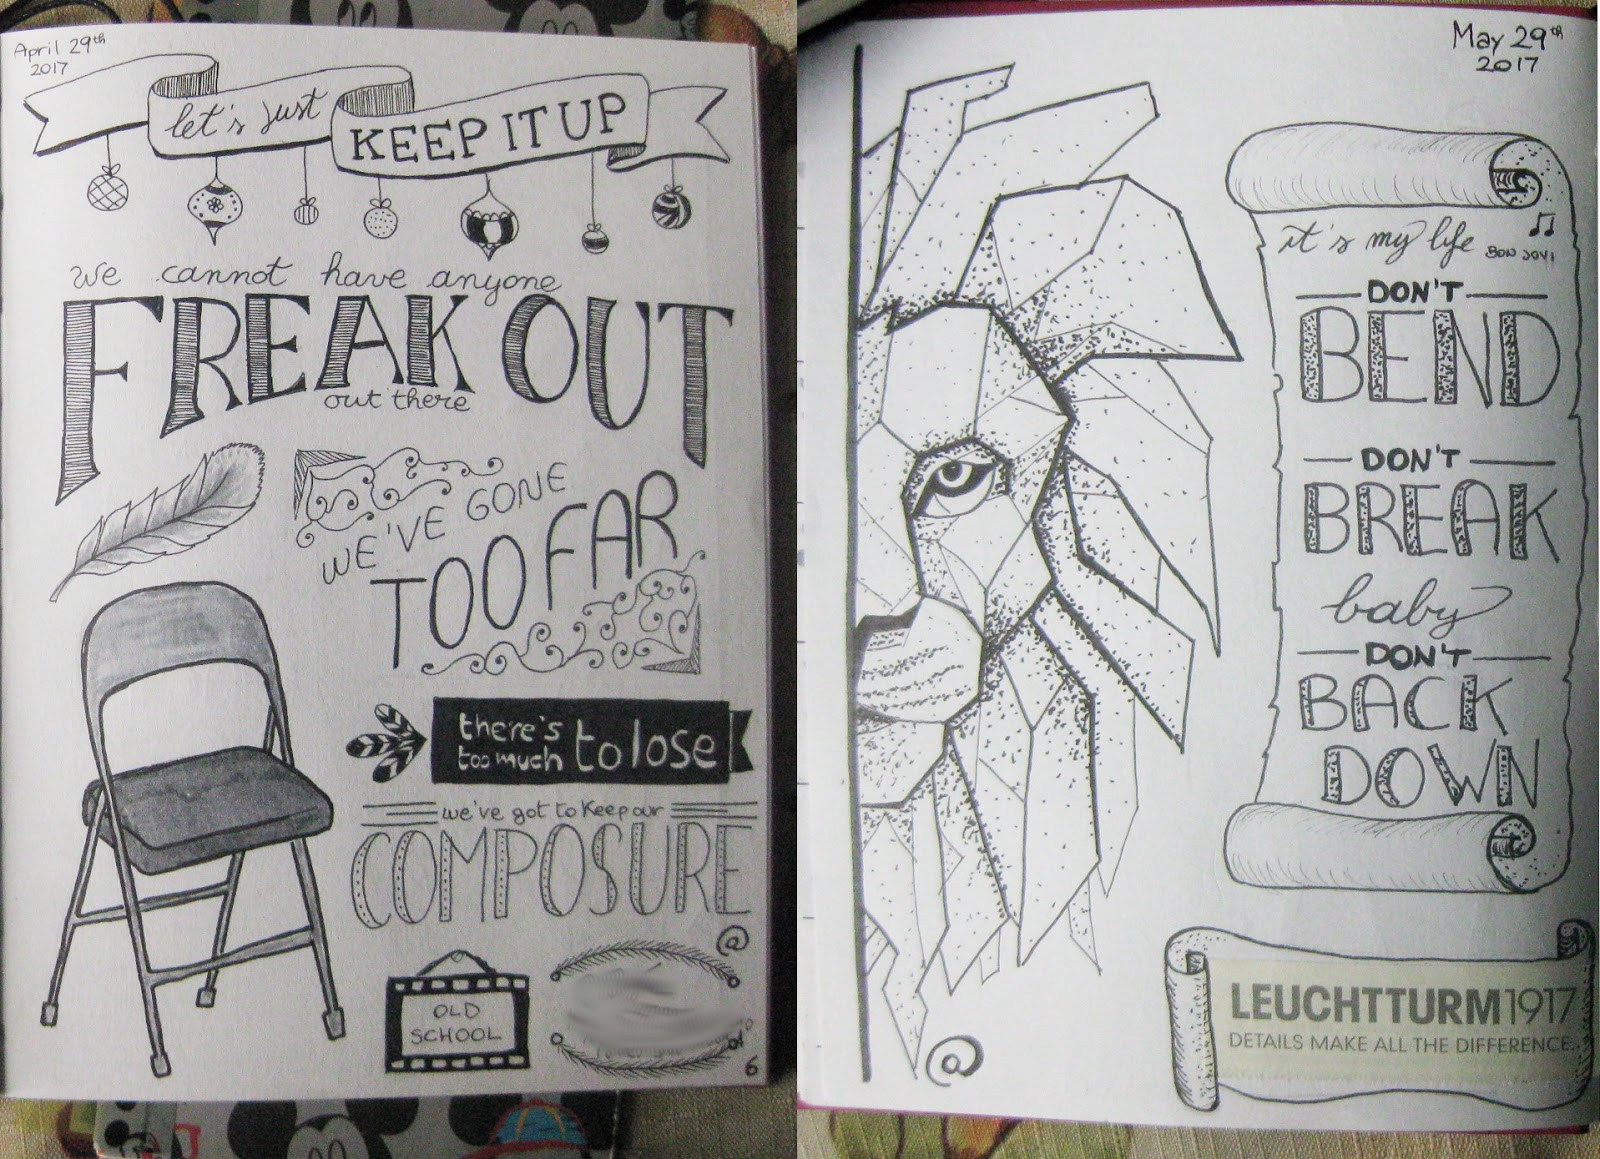 April 29th
2017
let's just
KEEP IT UP
we cannot have anyone
FREAK OUT
out there
WE'VE GONE
TOO FAR
there's
too much
to lose
we've got to keep our
COMPOSURE
@
OLD
SCHOOL
6
May 29th
2017
it's my life
BON JOVI
DON'T
BEND
DON'T
BREAK
baby
DON'T
BACK
DOWN
LEUCHTTURM1917
DETAILS MAKE ALL THE DIFFERENCE..
@